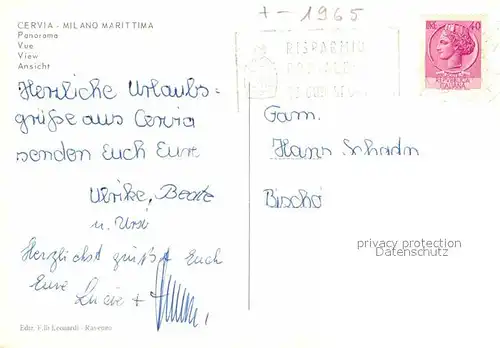 CERVIA - MILANO MARITTIMA
Panorama
Vue
View
Ansicht
+-1965
RISPARMIO
40
REPUBBLICA
ITALIANA
Herzliche Urlaubs-
grüße aus Cervia
senden Euch Eure
Ulrike, Beate
u. Ursi
Herzlichst grüßt Euch
Eure
Fam.
Hans
privacy protection
Datenschutz
Ediz. F.lli Leonardi - Ravenna